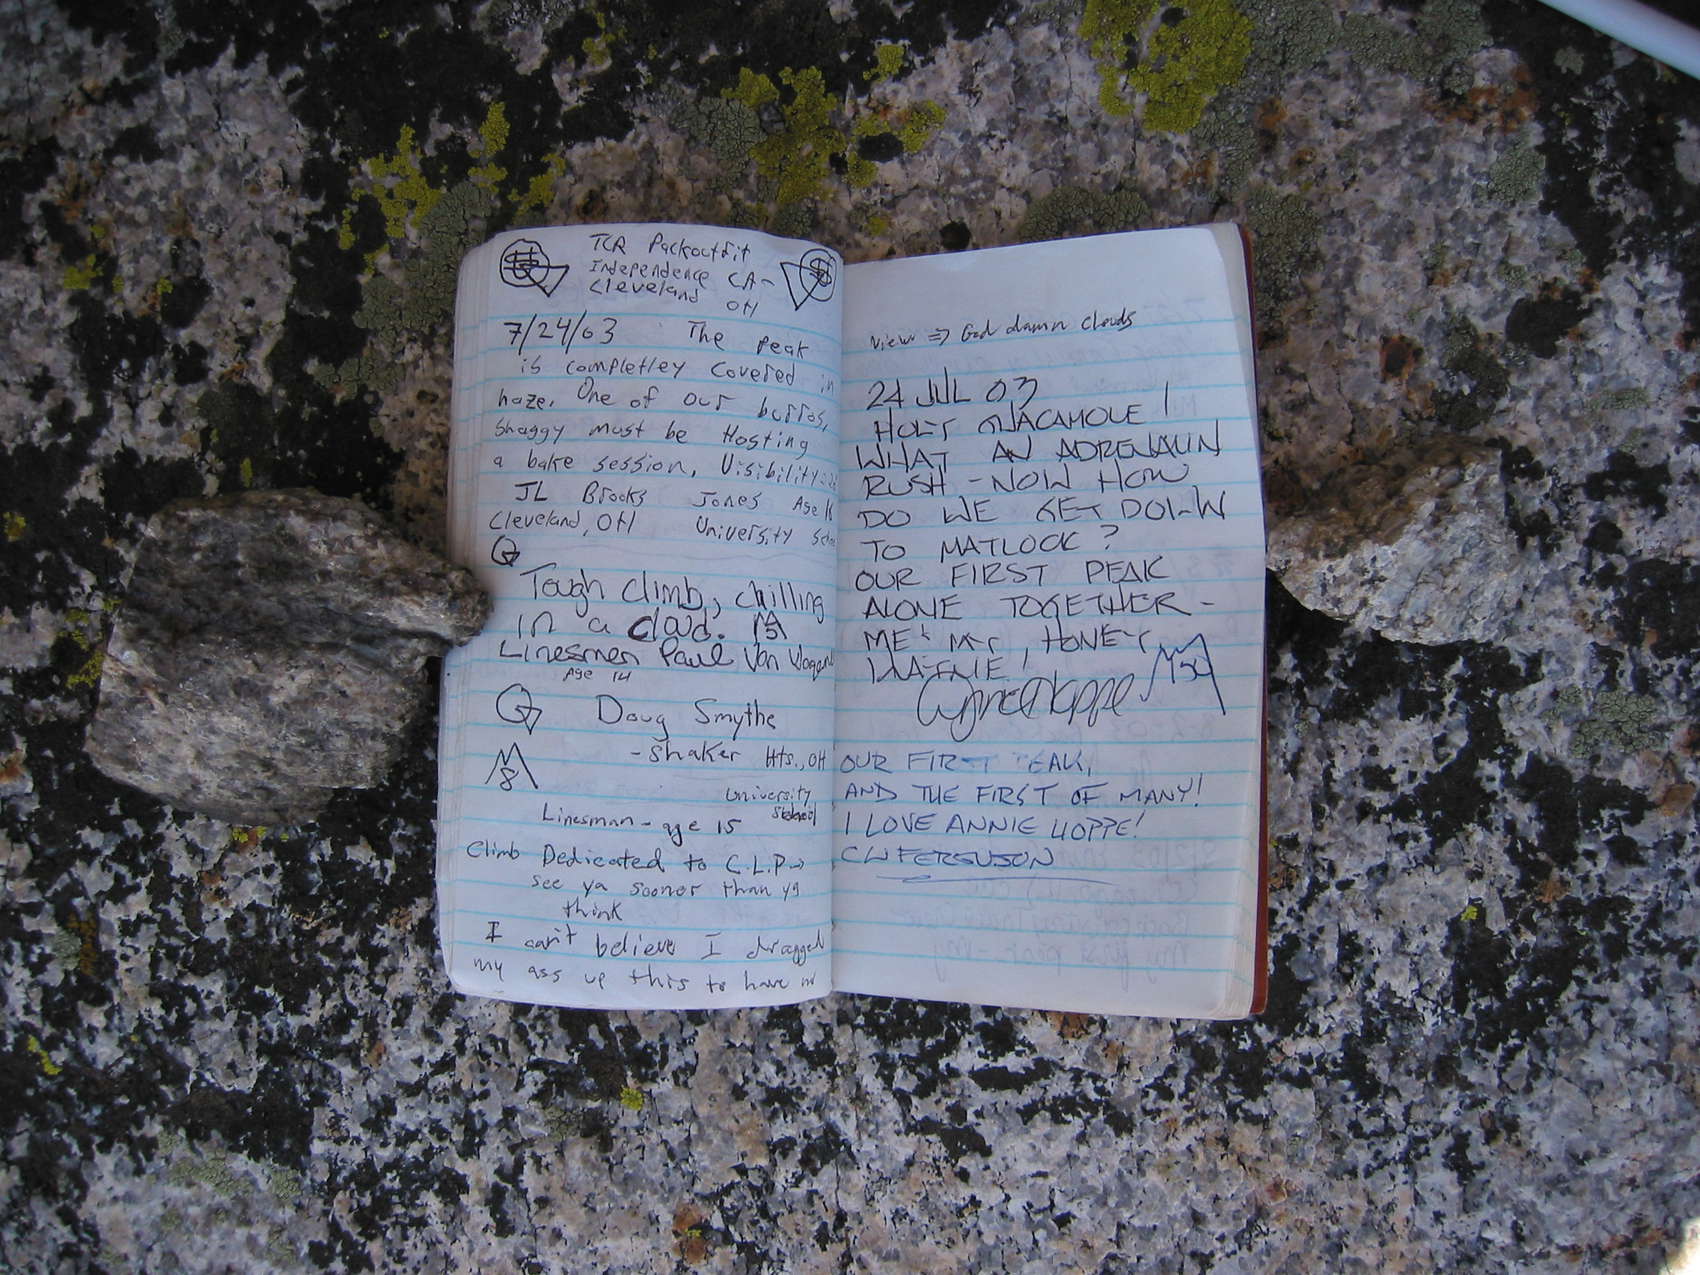 TCR Packoutfit
Independence CA-
Cleveland OH
7/24/03 The peak
is completley covered in
haze. One of our burros,
Shaggy must be Hosting
a bake session, Visibility
JL Brooks Jones Age 16
Cleveland, OH University
Tough climb, chilling
in a cloud. 5
Linesmen Paul Van
Age 14
Doug Smythe
- Shaker Hts., OH
8
University
School
Linesman - age 15
Climb Dedicated to C.L.P→
see ya sooner than ya
think
I can't believe I dragged
my ass up this to have no
view ⇒ God damn clouds
24 JUL 03
HOLY GUACAMOLE!
WHAT AN ADRENALIN
RUSH - NOW HOW
DO WE GET DOWN
TO MATLOCK?
OUR FIRST PEAK
ALONE TOGETHER -
ME & MY HONEY
Hoppe
OUR FIRST PEAK,
AND THE FIRST OF MANY!
I LOVE ANNIE HOPPE!
CW FERGUSON